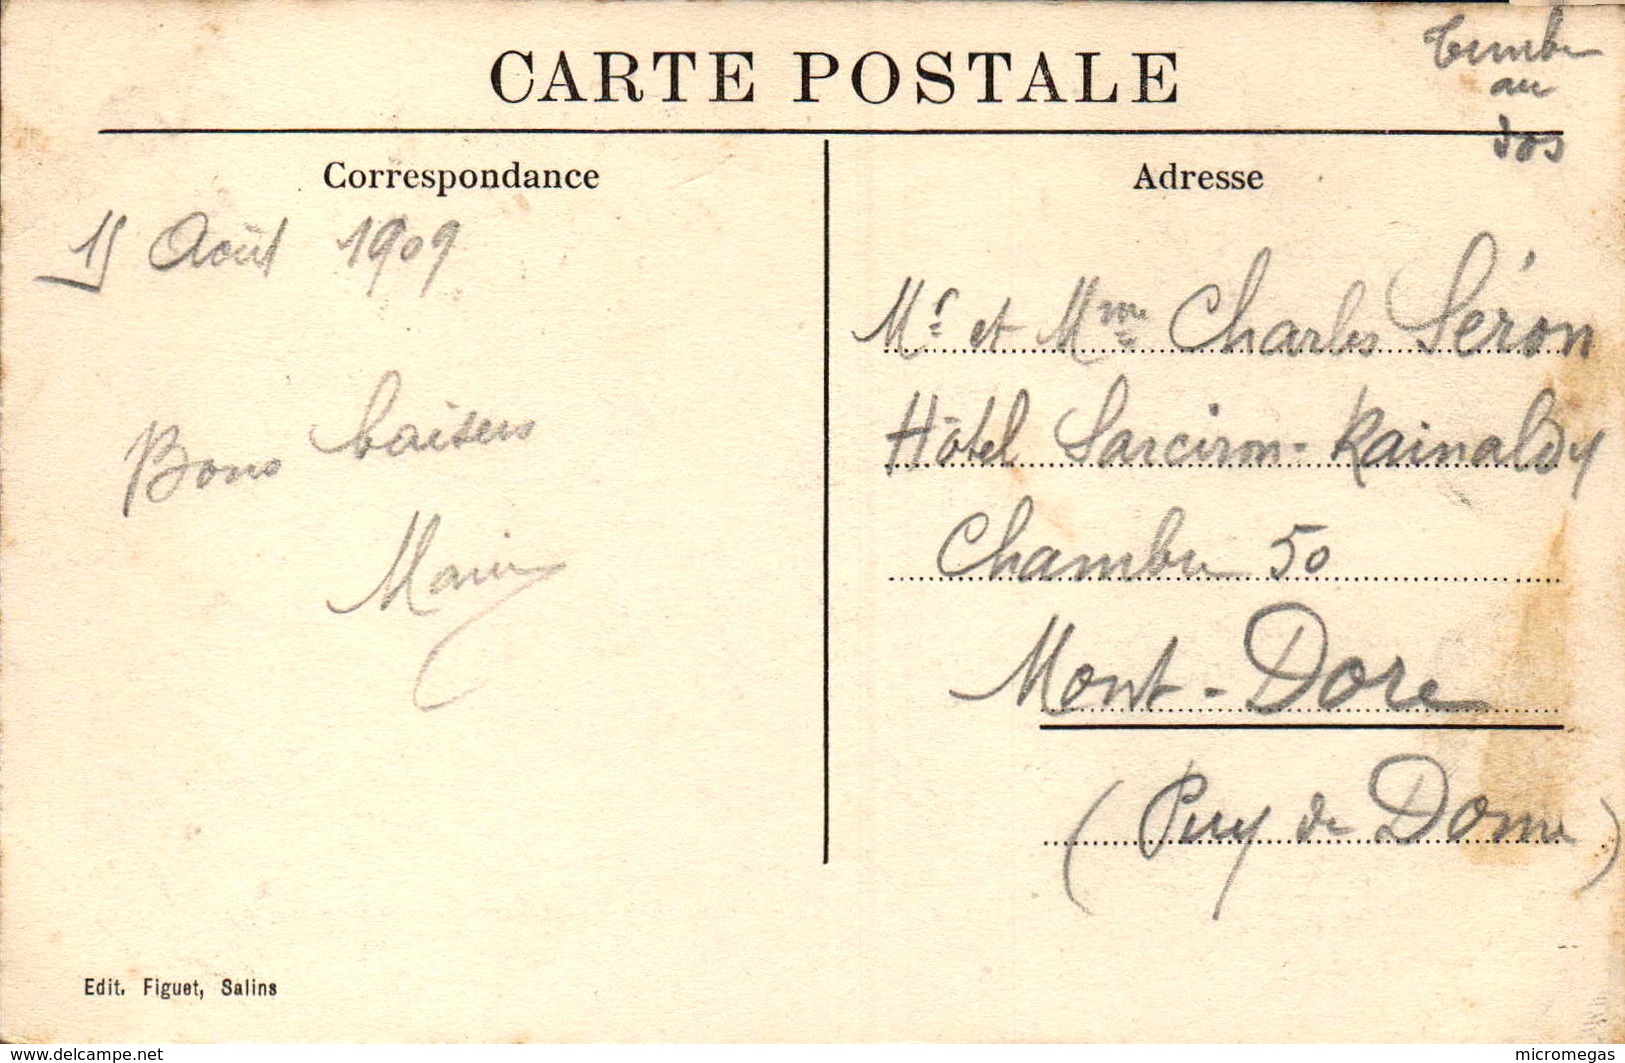 CARTE POSTALE
Timbre
au
dos
Correspondance
15 Août 1909
Bons baisers
Marie
Edit. Figuet, Salins
Adresse
Mr et Mme Charles Séron
Hôtel Sarciron-Rainaldy
Chambre 50
Mont-Dore
(Puy de Dome)
www.delcampe.net
micromegas